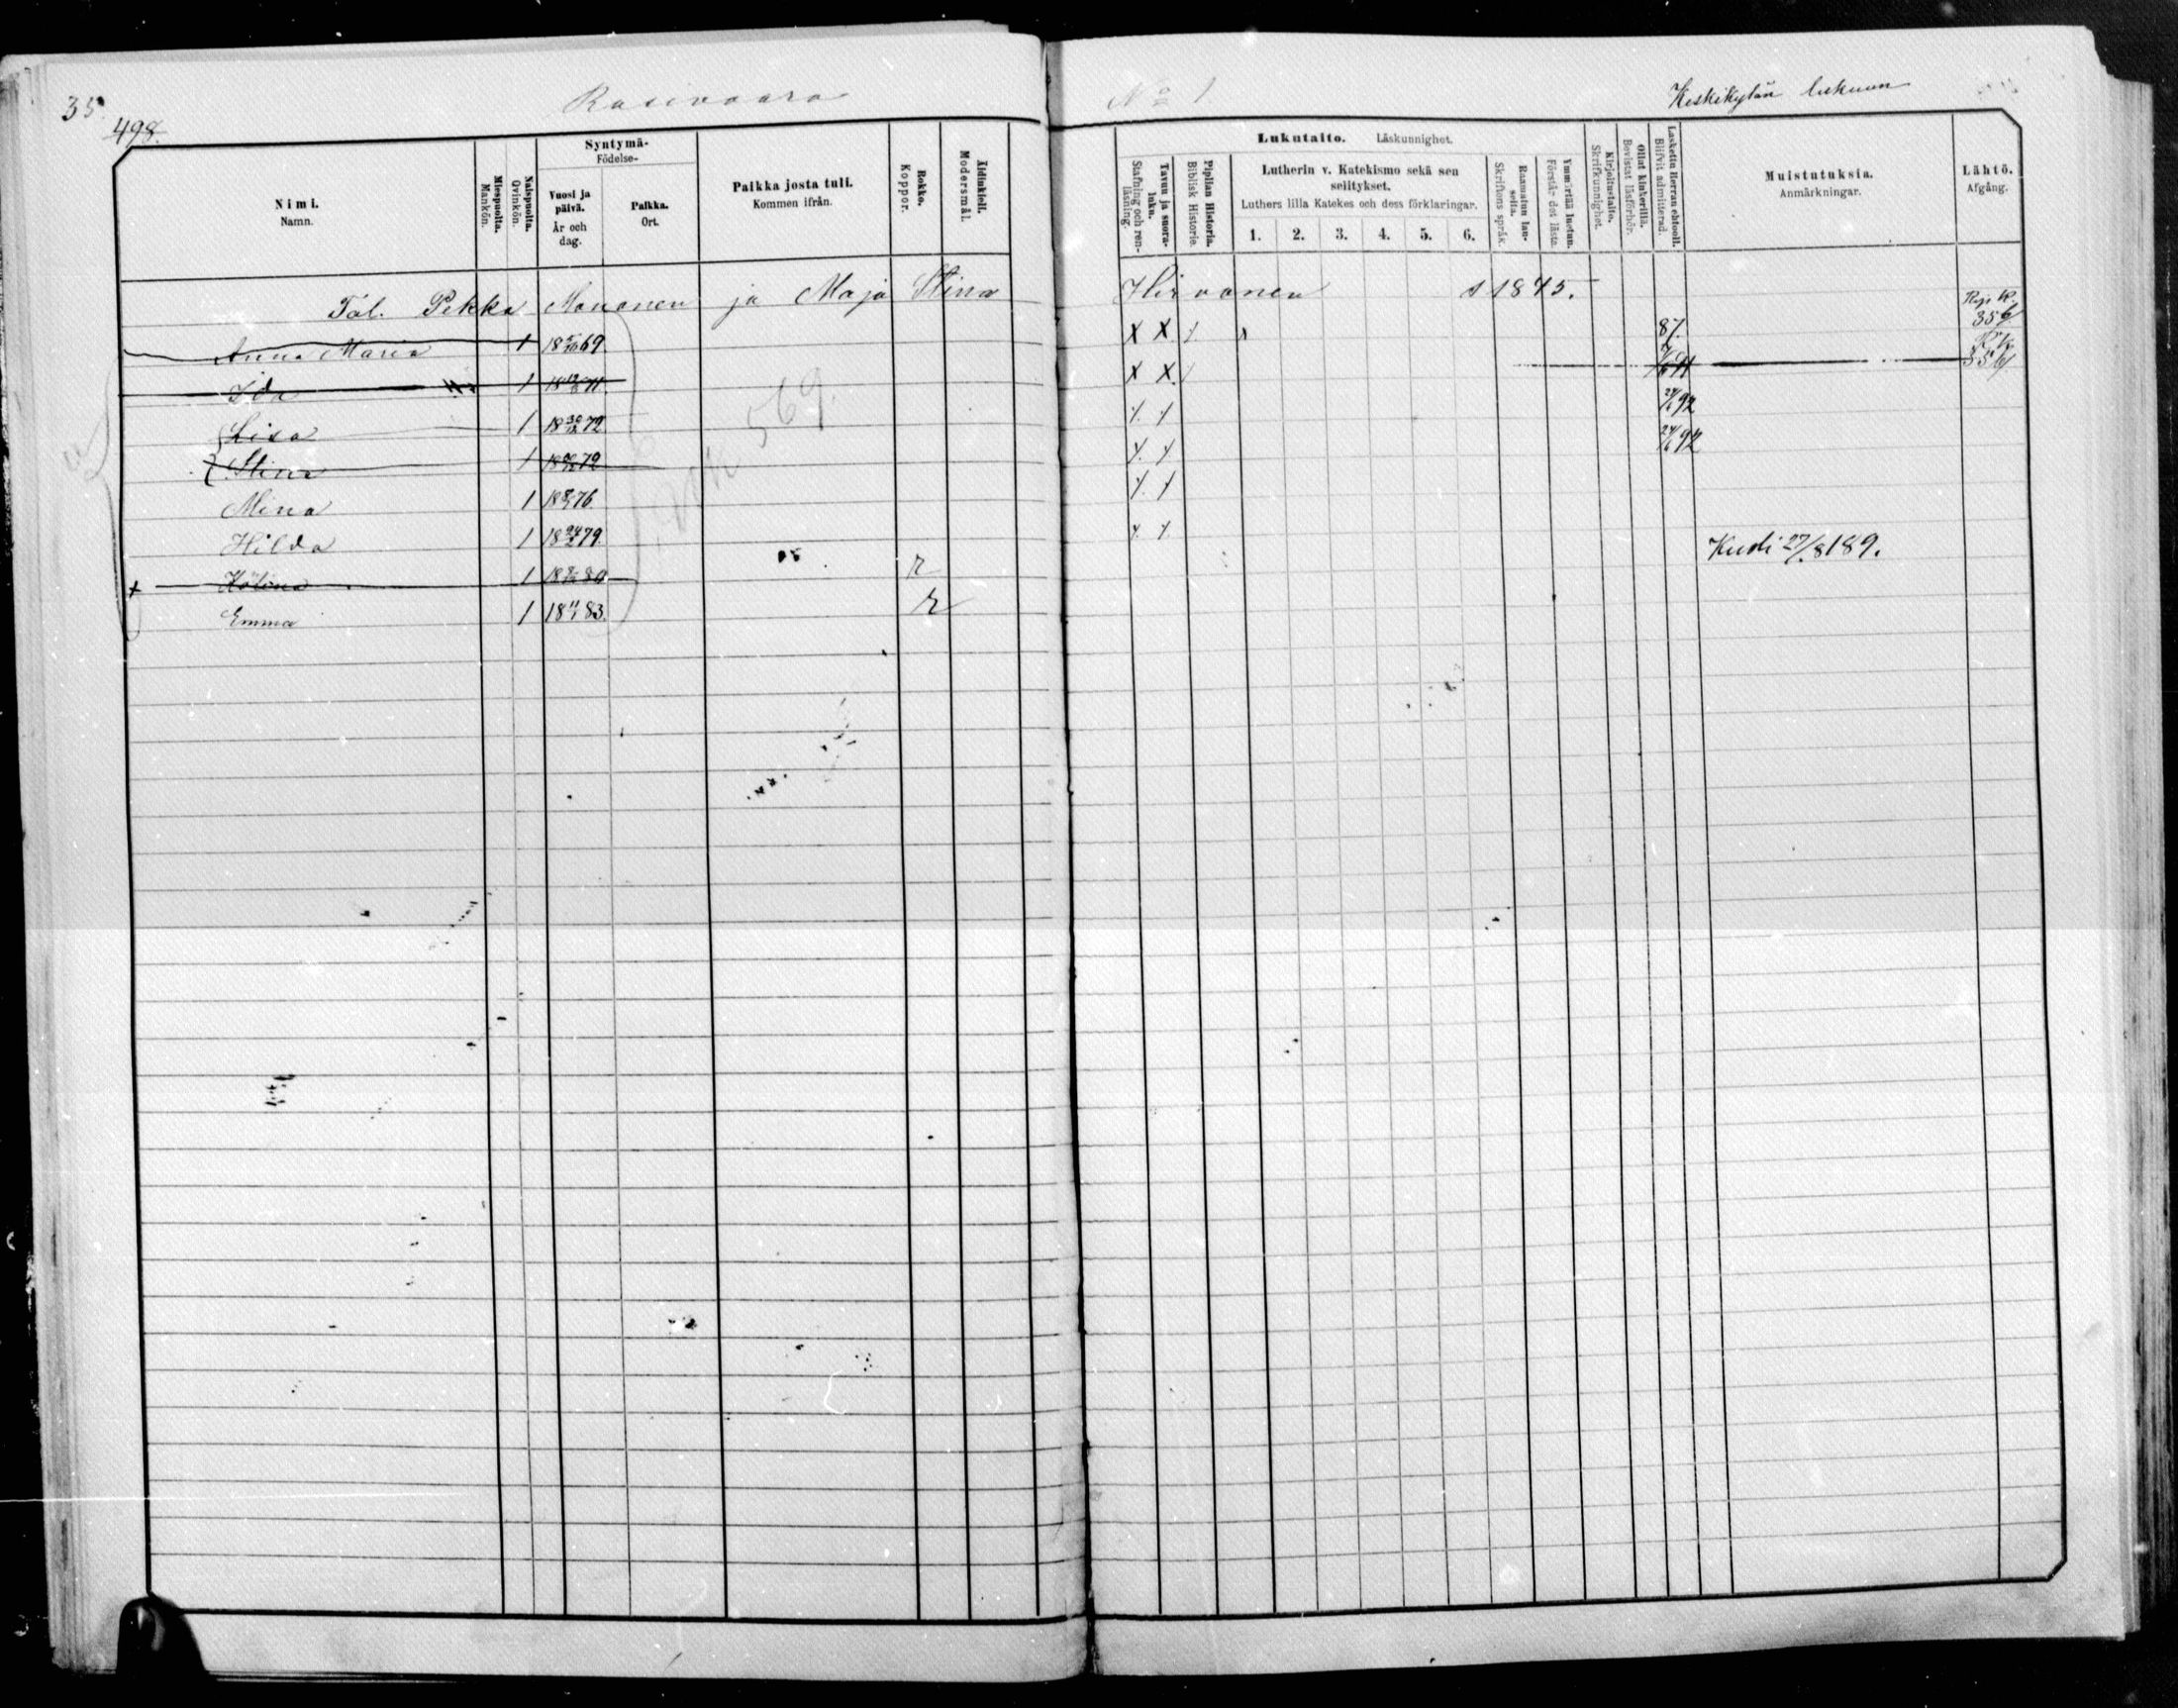 35.
498.
Rasivaara
No 1
Keskikylän lukuun
Nimi.
Namn.
Miespuolta.
Mankön.
Naispuolta.
Qvinkön.
Syntymä-
Födelse-
Vuosi ja päivä.
År och dag.
Paikka.
Ort.
Paikka josta tuli.
Kommen ifrån.
Rokko.
Koppor.
Äidinkieli.
Modersmål.
Lukutaito. Läskunnighet.
Tavuu ja suora-luku.
Stafning och ren-läsning.
Piplian Historia.
Biblisk Historie.
Lutherin v. Katekismo sekä sen selitykset.
Luthers lilla Katekes och dess förklaringar.
1. 2. 3. 4. 5. 6.
Raamatun lau-seita.
Skriftens språk.
Ymmärtää luetun.
Förstår det lästa.
Kirjoitustaito.
Skrifkunnighet.
Ollut kinkerillä.
Bevistat läsförhör.
Laskettu Herran ehtooll.
Blifvit admitterad.
Muistutuksia.
Anmärkningar.
Lähtö.
Afgång.
Tal. Pekka Mononen ja Maja Stina Hirvonen s 1845.
Anna Maria 1 69 X X 87. 356
Ida 1 71 X X 91 356
Lisa 1 18 72 24/6 92
Stina 1 18 72 24/6 92
569.
Mina 1 18 76
Hilda 1 18 24 79
Helena 1 18 80 r Kuoli 27/8 189.
Emma 1 18 11 83. r